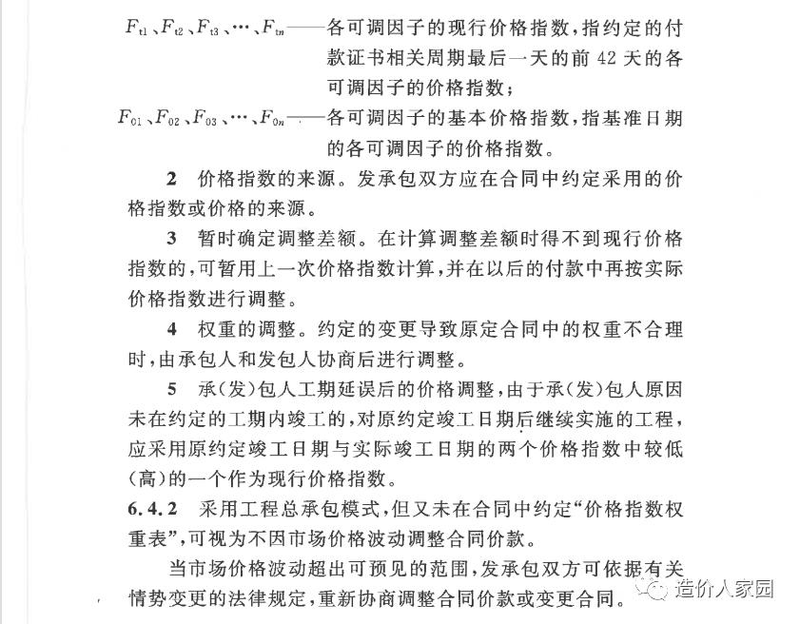 Ft1、Ft2、Ft3、…、Ftn——各可调因子的现行价格指数,指约定的付
款证书相关周期最后一天的前 42 天的各
可调因子的价格指数;
F01、F02、F03、…、F0n——各可调因子的基本价格指数,指基准日期
的各可调因子的价格指数。
2 价格指数的来源。发承包双方应在合同中约定采用的价
格指数或价格的来源。
3 暂时确定调整差额。在计算调整差额时得不到现行价格
指数的,可暂用上一次价格指数计算,并在以后的付款中再按实际
价格指数进行调整。
4 权重的调整。约定的变更导致原定合同中的权重不合理
时,由承包人和发包人协商后进行调整。
5 承(发)包人工期延误后的价格调整,由于承(发)包人原因
未在约定的工期内竣工的,对原约定竣工日期后继续实施的工程,
应采用原约定竣工日期与实际竣工日期的两个价格指数中较低
(高)的一个作为现行价格指数。
6.4.2 采用工程总承包模式,但又未在合同中约定“价格指数权
重表”,可视为不因市场价格波动调整合同价款。
当市场价格波动超出可预见的范围,发承包双方可依据有关
情势变更的法律规定,重新协商调整合同价款或变更合同。
造价人家园